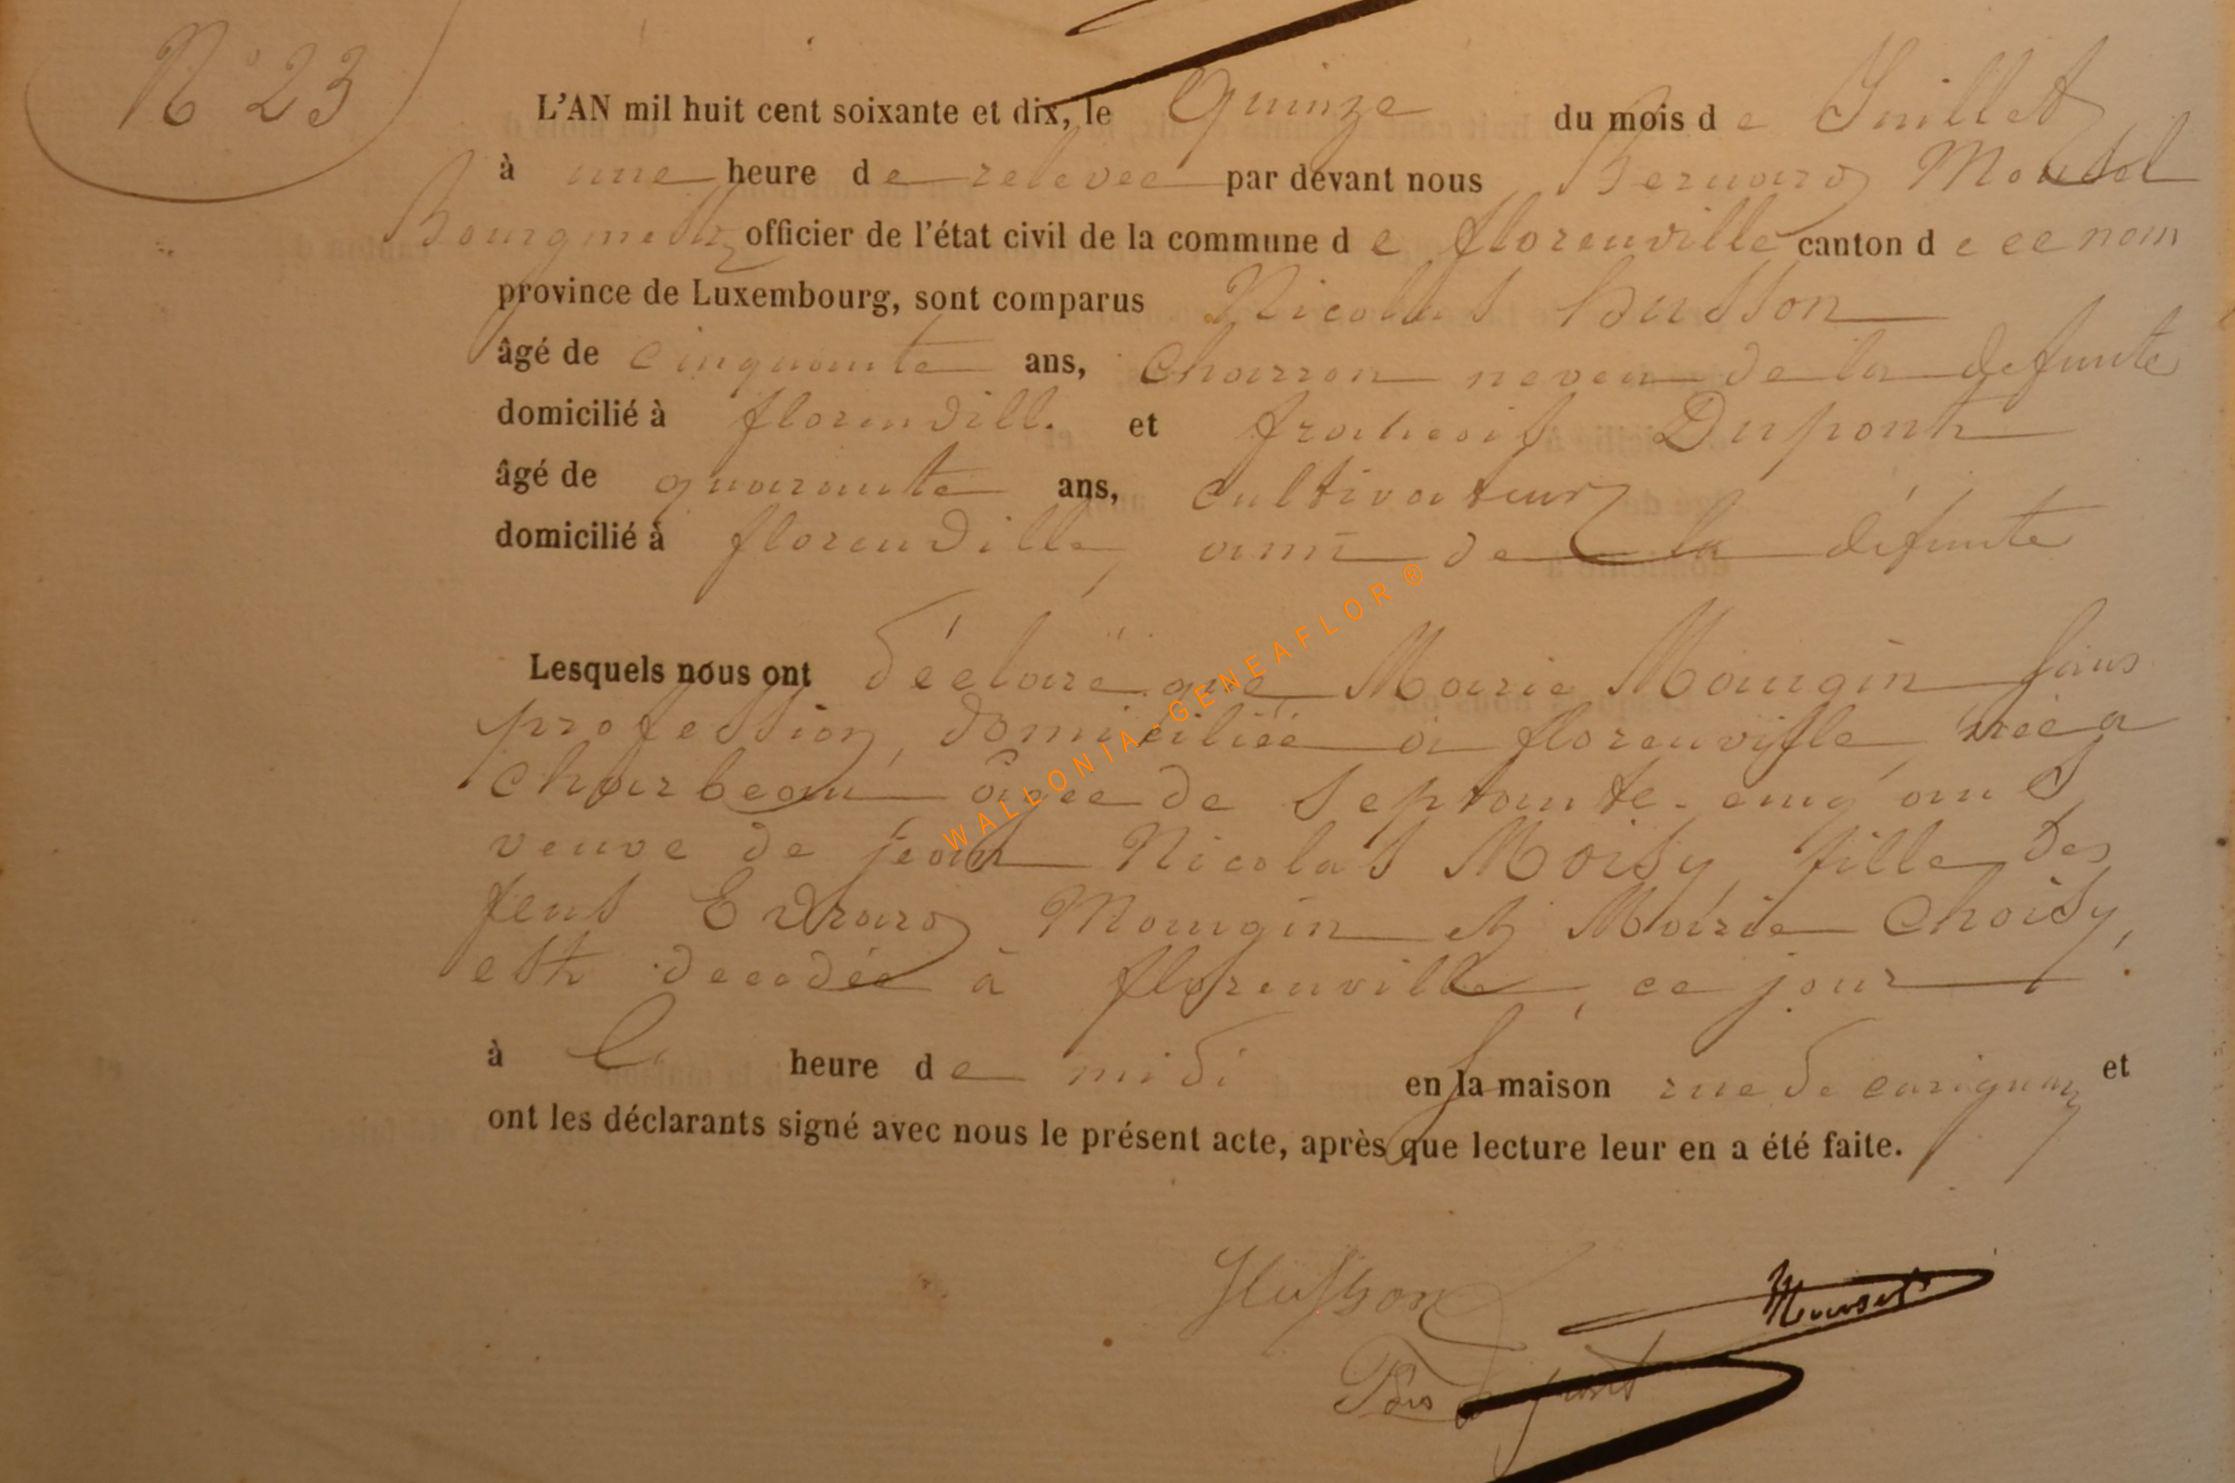 N° 23
L'AN mil huit cent soixante et dix, le Quinze du mois de Juillet
à une heure de relevée par devant nous Bernard
Bourgmestre officier de l'état civil de la commune de florenville canton de ce nom
province de Luxembourg, sont comparus Nicolas husson
âgé de cinquante ans, charron neveu de la defunte
domicilié à florenville et francois Dupont
âgé de quarante ans, cultivateur
domicilié à florenville, ami de la défunte
Lesquels nous ont déclaré que Marie Maugin sans
profession, domiciliée a florenville, née a
Charbeau âgée de septante-cinq ans,
veuve de jean Nicolas Moisy, fille des
feus Evrard Maugin et Marie Choisy,
est decedée à florenville, ce jour
à l' heure de midi en la maison rue de carignan et
ont les déclarants signé avec nous le présent acte, après que lecture leur en a été faite.
Husson
Dupont
WALLONIA-GENEAFLOR ®